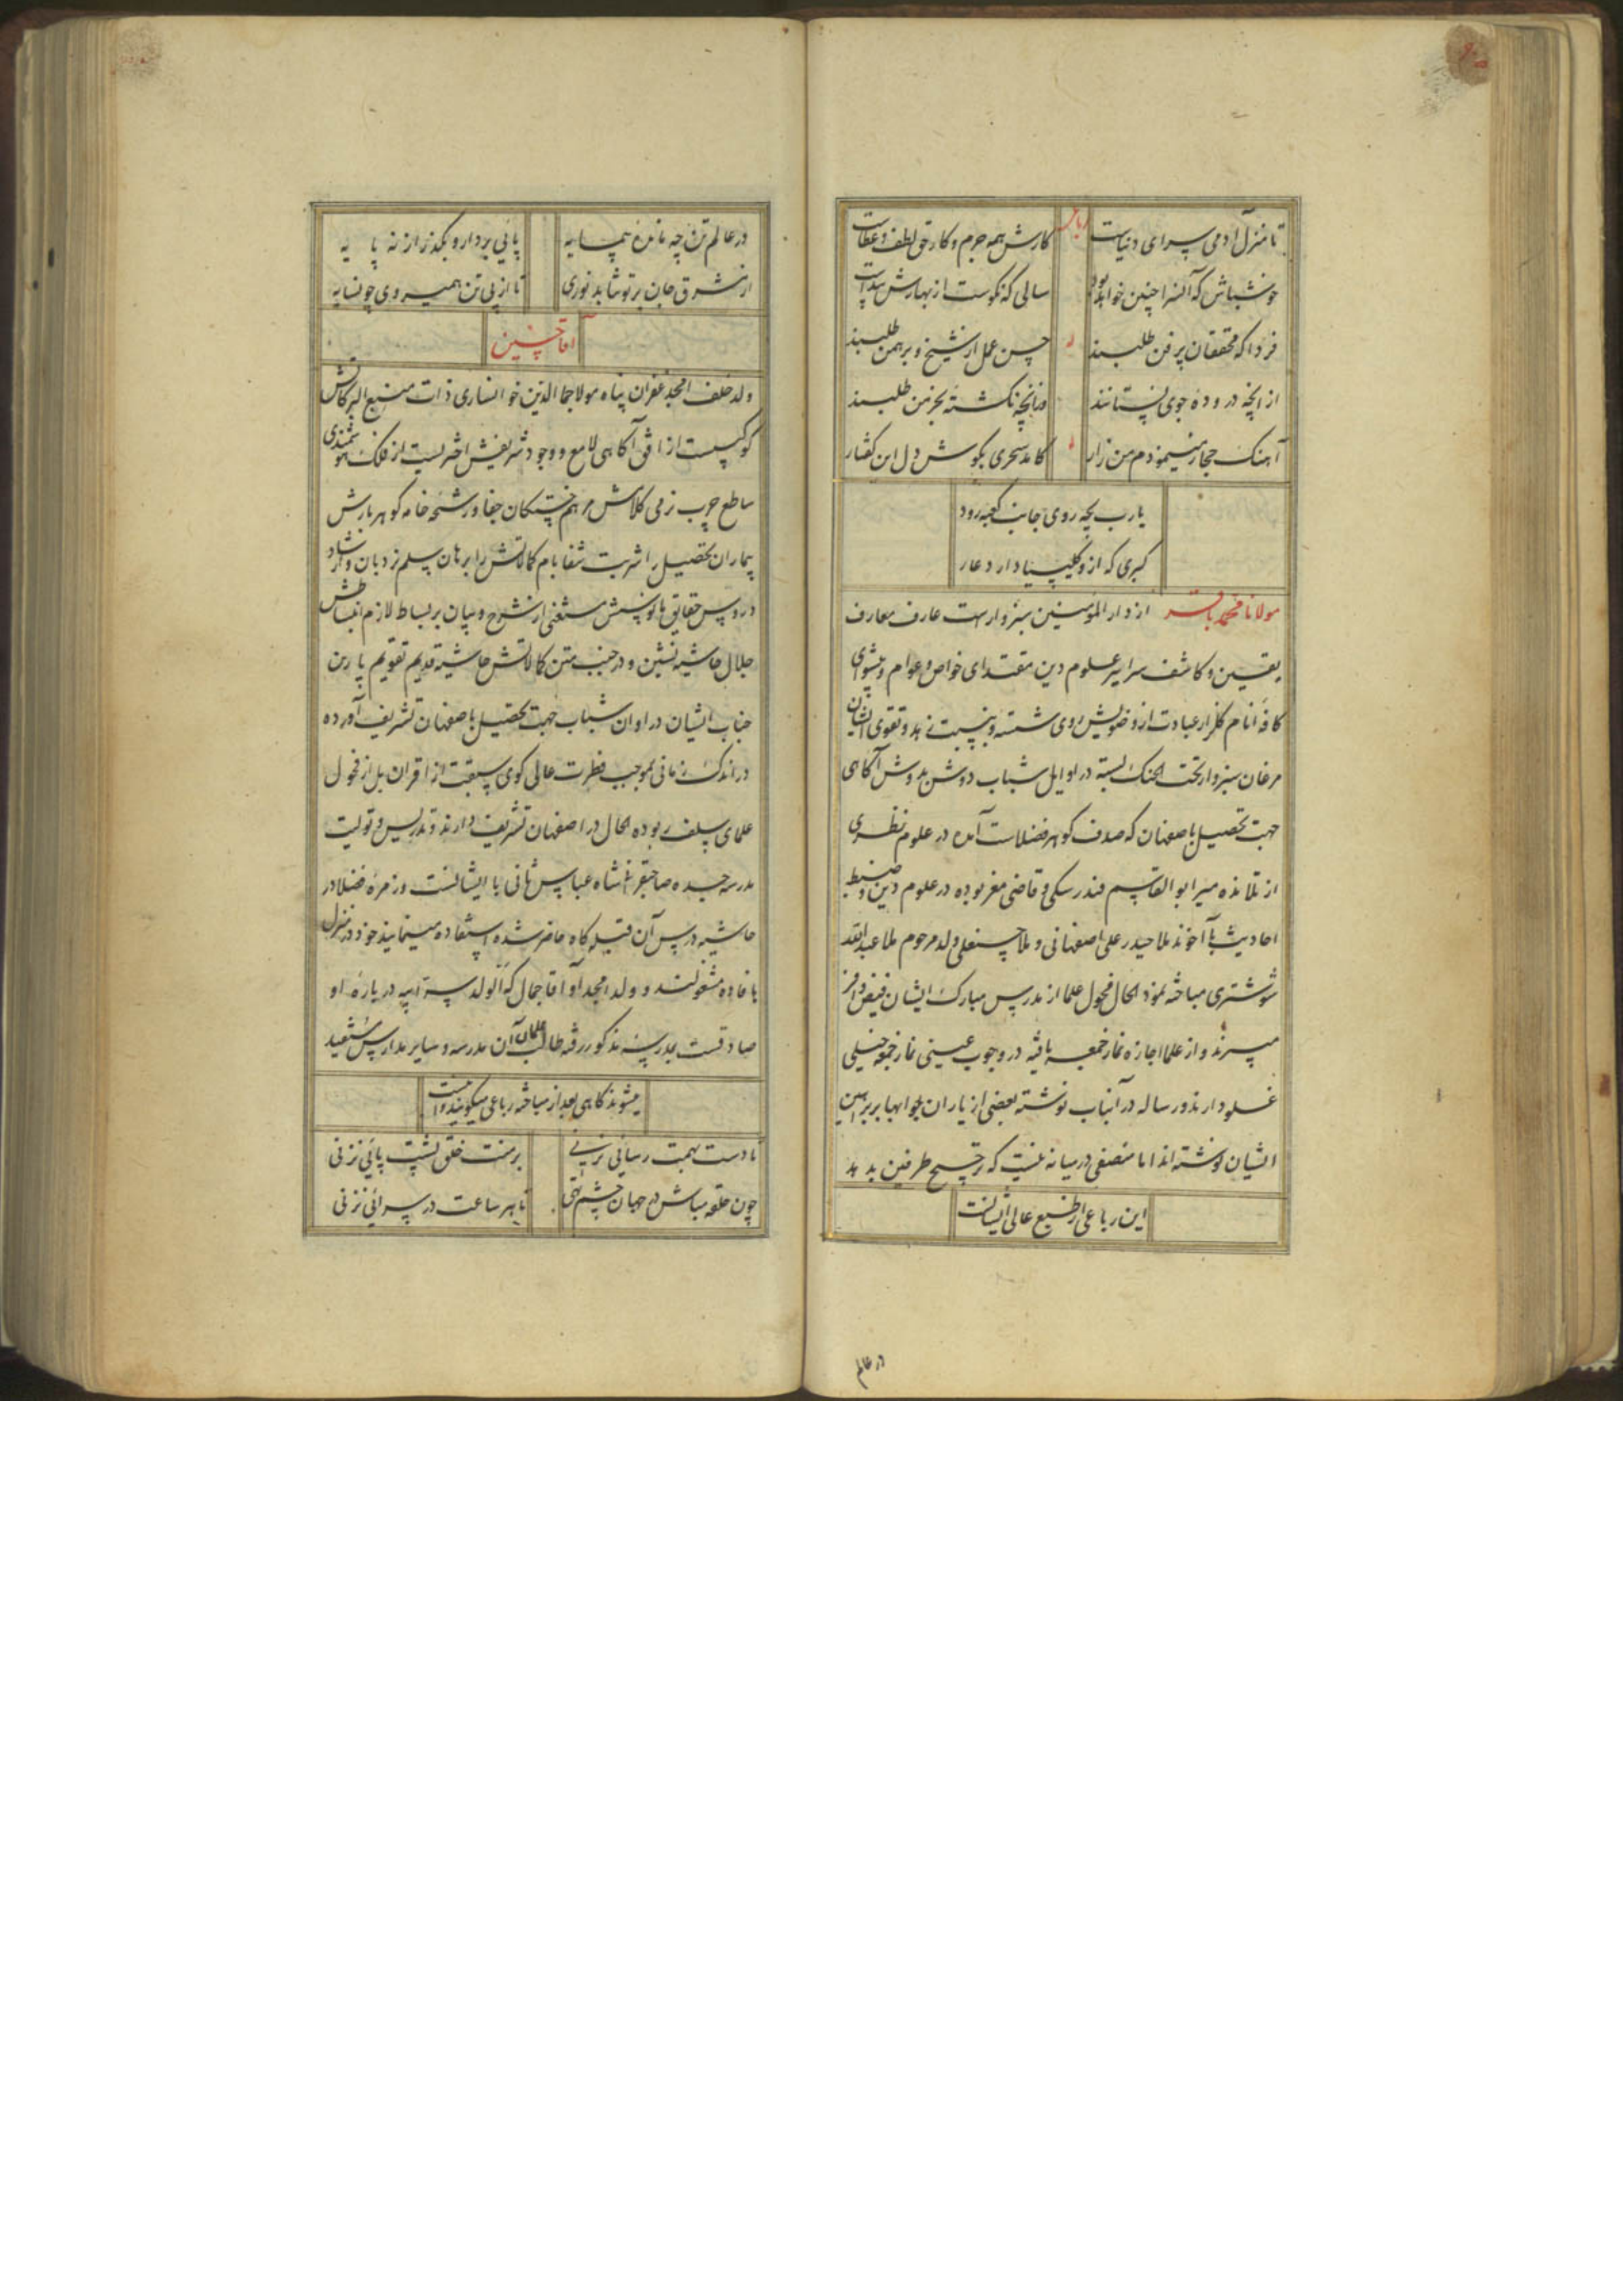 تا منزل آدمی سرای دنیاست
کارش همه جرم و کار حق لطف و عطاست
خوشباش که آنسرا چنین خواهد بود
سالی که نکوست از بهارش پیداست
فردا که محققان پر فن طلبند
حسن عمل از شیخ و برهمن طلبند
از آنچه دروده جوی نستانند
وز آنچه نکشته بخرمن طلبند
آهنک حجاز مینمودم من زار
کامد سحری بکوش دل این کفتار
یارب بچه روی جانب کعبه رود
کبری که ازو کلیسیا دارد عار
مولانا محمد باقر از دار المؤمنین سبزوارست عارف معارف
یقین و کاشف سرایر علوم دین مقتدای خاص و عوام و پیشوای
کافه انام کلزار عبادت از وضویش روی شسته و بنسبت زهد و تقوی ایشان
مرغان سبزوار تحت الحنک بسته در اوایل شباب دوش بدوش آکاهی
جهت تحصیل باصفهان که صدف کوهر فضلاست آمده در علوم نظری
از تلامذه میر ابو القاسم فندرسکی و قاضی معز بوده در علوم دین و ضبط
احادیث با آخوند ملا حیدر علی اصفهانی و ملا حسنعلی ولد مرحوم ملا عبد الله
شوشتری مباحثه نموده الحال فحول علما از مدرس مبارک ایشان فیض وافر
میبرند و از علما اجازه نماز جمعه یافته در وجوب عینی نماز جمعه خیلی
غلو دارند و رساله در آنباب نوشته بعضی از یاران جوابها بر براهین
ایشان نوشته اند اما منصفی در میانه نیست که ترجیح طرفین بدهد
این رباعی از طبع عالی ایشانست
در عالم
در عالم تن چه مانده بیمایه
پائی بردار و بکذر از نه پایه
از مشرق جان بر تو نتابد نوری
تا از پی تن همیروی چونسایه
آقا حسین
ولد خلف امجد غفران پناه مولا جمال الدین خوانساری ذات منبع البرکاتش
کوکبیست از افق آکاهی لامع و وجود شریفش اختریست از فلک هوشمندی
ساطع چرب نرمی کلامش مرهم خستکان جفا و رشحه خامه کوهر بارش
بیماران تحصیل را شربت شفا بام کمالاتش را برهان سلم نردبان و ارشاد
دروس حقایق مانوسش مستغنی از شرح و بیان بر بساط لازم انبساطش
جلال حاشیه نشین و در جنب متن کمالاتش حاشیه قدیم تقویم پارین
جناب ایشان در اوان شباب جهت تحصیل باصفهان تشریف آورده
در اندک زمانی بموجب فطرت عالی کوی سبقت از اقران بل از فحول
علمای سلف ربوده الحال در اصفهان تشریف دارند و تدریس و تولیت
مدرسه جده صاحبقران شاه عباس ثانی با ایشانست و زمره فضلا در
حاشیه درس آن قبله کاه حاضر شده استفاده مینمایند خود در منزل
بافاده مشغولند و ولد امجد او آقا جمال که الولد سر ابیه در باره او
صادقست بمدرسه مذکور رفته طالب علمان آن مدرسه و سایر مدارس مستفید
میشوند کاهی بعد از مباحثه رباعی میکویند و آنست
تا دست بهمت رسائی نزنی
بر منت خلق پشت پائی نزنی
چون حلقه مباش در جهان چشم تهی
تا هر ساعت در سرائی نزنی